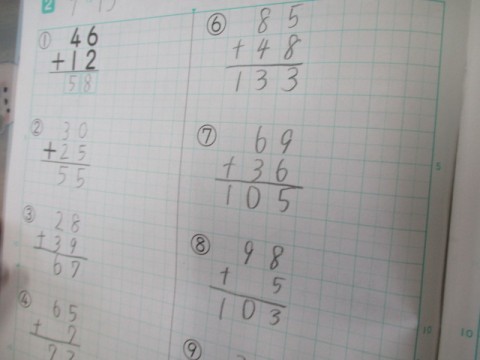 2
①
46
+12
58
②
30
+25
55
③
28
+39
67
④
65
+ 7
⑥
85
+48
133
⑦
69
+36
105
⑧
98
+ 5
103
⑨
5
10
10